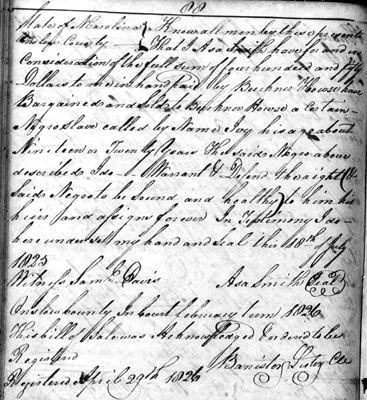 88
State of N Carolina } Know all men by these presents
Onslow County } That I Asa Smith have for and in
Consideration of the full sum of four hundred and fifty
Dollars to me in hand paid by Buckner Howse have
Bargained and Sold to Buckner Howse a Certain
Negro Slave called by Name Ivy his age about
Nineteen or Twenty years The said Negro above
described I do Warrant & Defend the right of
Said Negro to be Sound and healthy to him his
heirs and assigns forever In Testimony I do
here under Set my hand and Seal this 18th July
1825
Witness Saml E Davis Asa Smith Seal
Onslow County In Court February term 1826
This bill of Sale was Acknowledged & ordered to be
Registered
Banister Lester Clk
Registered April 29th 1826